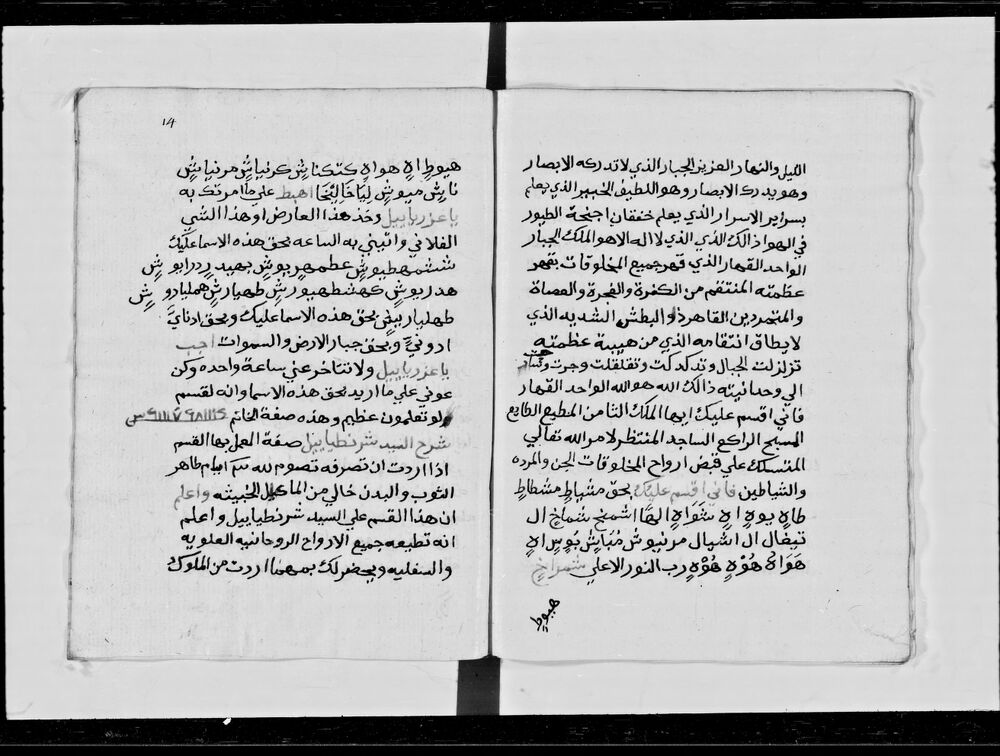 الليل والنهار العزيز الجبار الذي لا تدركه الابصار
وهو يدرك الابصار وهو اللطيف الخبير الذي يعلم
بسراير الاسرار الذي يعلم خفقان اجنحة الطيور
في الهوا ذالك الذي الذي لا اله الا هو الملك الجبار
الواحد القهار الذي قهر جميع المخلوقات بقهر
عظمته المنتقم من الكفرة والفجرة والعصاة
والمتمردين القاهر ذو البطش الشديد الذي
لا يطاق انتقامه الذي من هيبة عظمته
تزلزلت الجبال وتدكدكت وتقلقلت وجرت
الي وحدانيته ذالك الله هو الله الواحد القهار
فاني اقسم عليك ايها الملك الثامن المطيع الطايع
المسبح الراكع الساجد المنتظر لامر الله تعالي
المتسلك علي قبض ارواح المخلوقات الجن والمرده
والشياطين فاني اقسم عليك بحق مشهاط مشطاط
طاه يوه اه شواه الها اشمخ شماخ ال
تيغال ال اشيال مرنيوش مباش بوس اه
هواه هوه هوه رب النور الاعلي شمراخ
هيوط
14
هيوط اه هواه كتكناش كرنياش مرنياش
ناش ميوش لياخا ليخا اهبط علي ما امرتك به
يا عزرياييل وخذ هذا العارض او هذا الشي
الفلاني واتيني به الساعه بحق هذه الاسما عليك
ششمهطيوش عطمهريوش بهيدردرابوش
هدريوش كهشطهيورش طهيارش همليادوش
طهليارييش بحق هذه الاسما عليك وبحق ادناي
ادوني وبحق جبار الارض والسموات اجب
يا عزرياييل ولا تتاخر عني ساعة واحده وكن
عوني علي ما اريد بحق هذه الاسما وانه لقسم
لو تعلمون عظيم وهذه صفة الخاتم
شرح السيد شرنطياييل صفة العمل بها القسم
اذا اردت ان تصرفه تصوم لله ايام طاهر
الثوب والبدن خالي من الماكل الخبيثه واعلم
ان هذا القسم علي السيد شرنطياييل واعلم
انه تطيعه جميع الارواح الروحانيه العلويه
والسفليه ويحضر لك بمهما اردت من الملوك